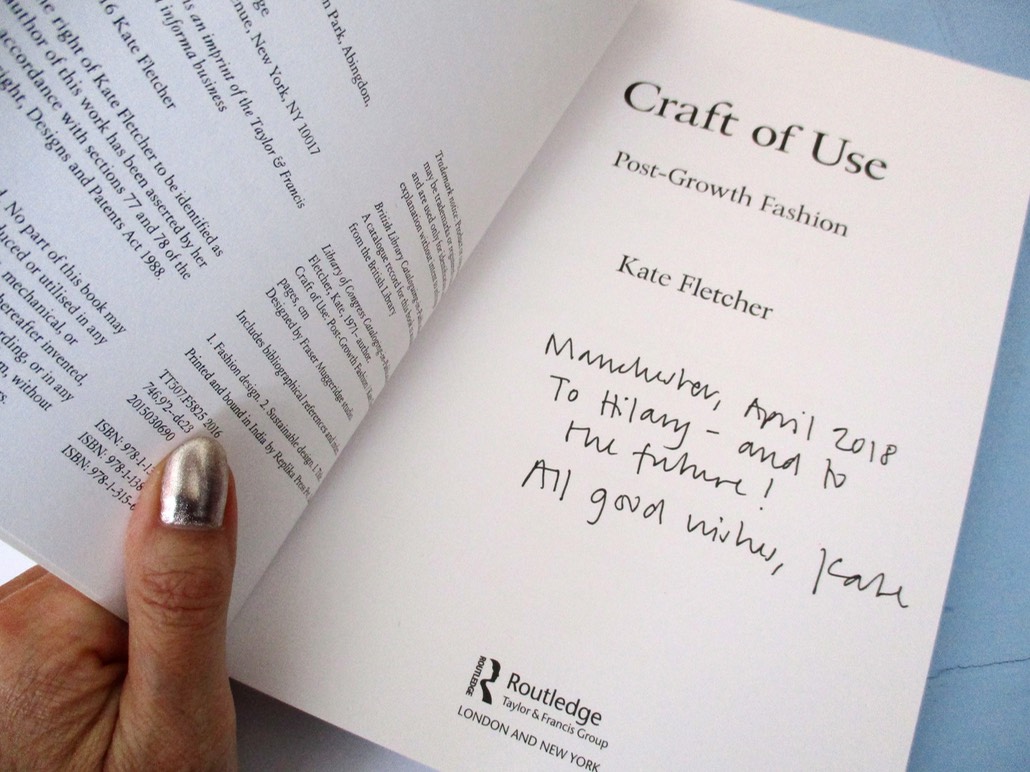 n Park, Abingdon,
enue, New York, NY 10017
is an imprint of the Taylor & Francis
informa business
16 Kate Fletcher
right of Kate Fletcher to be identified as
author of this work has been asserted by her
accordance with sections 77 and 78 of the
right, Designs and Patents Act 1988.
No part of this book may
or utilised in any
mechanical, or
hereafter invented,
or in any
without
Trademark notice:
may be trademarks or
and are used only for
explanation without
British Library
A catalogue record for this book
from the British Library
Library of Congress
Fletcher, Kate, 1971- author.
Craft of Use: Post-Growth Fashion
pages, cm
Designed by Fraser Muggeridge studio,
Includes bibliographical references and
1. Fashion design. 2. Sustainable design. I.
Printed and bound in India by Replika Press
TT507.F5825 2016
746.92–dc23
2015030690
ISBN: 978-1-13
ISBN: 978-1-138
ISBN: 978-1-315-6
Craft of Use
Post-Growth Fashion
Kate Fletcher
Manchester, April 2018
To Hilary – and to
the future!
All good wishes, Kate
ROUTLEDGE
Routledge
Taylor & Francis Group
LONDON AND NEW YORK